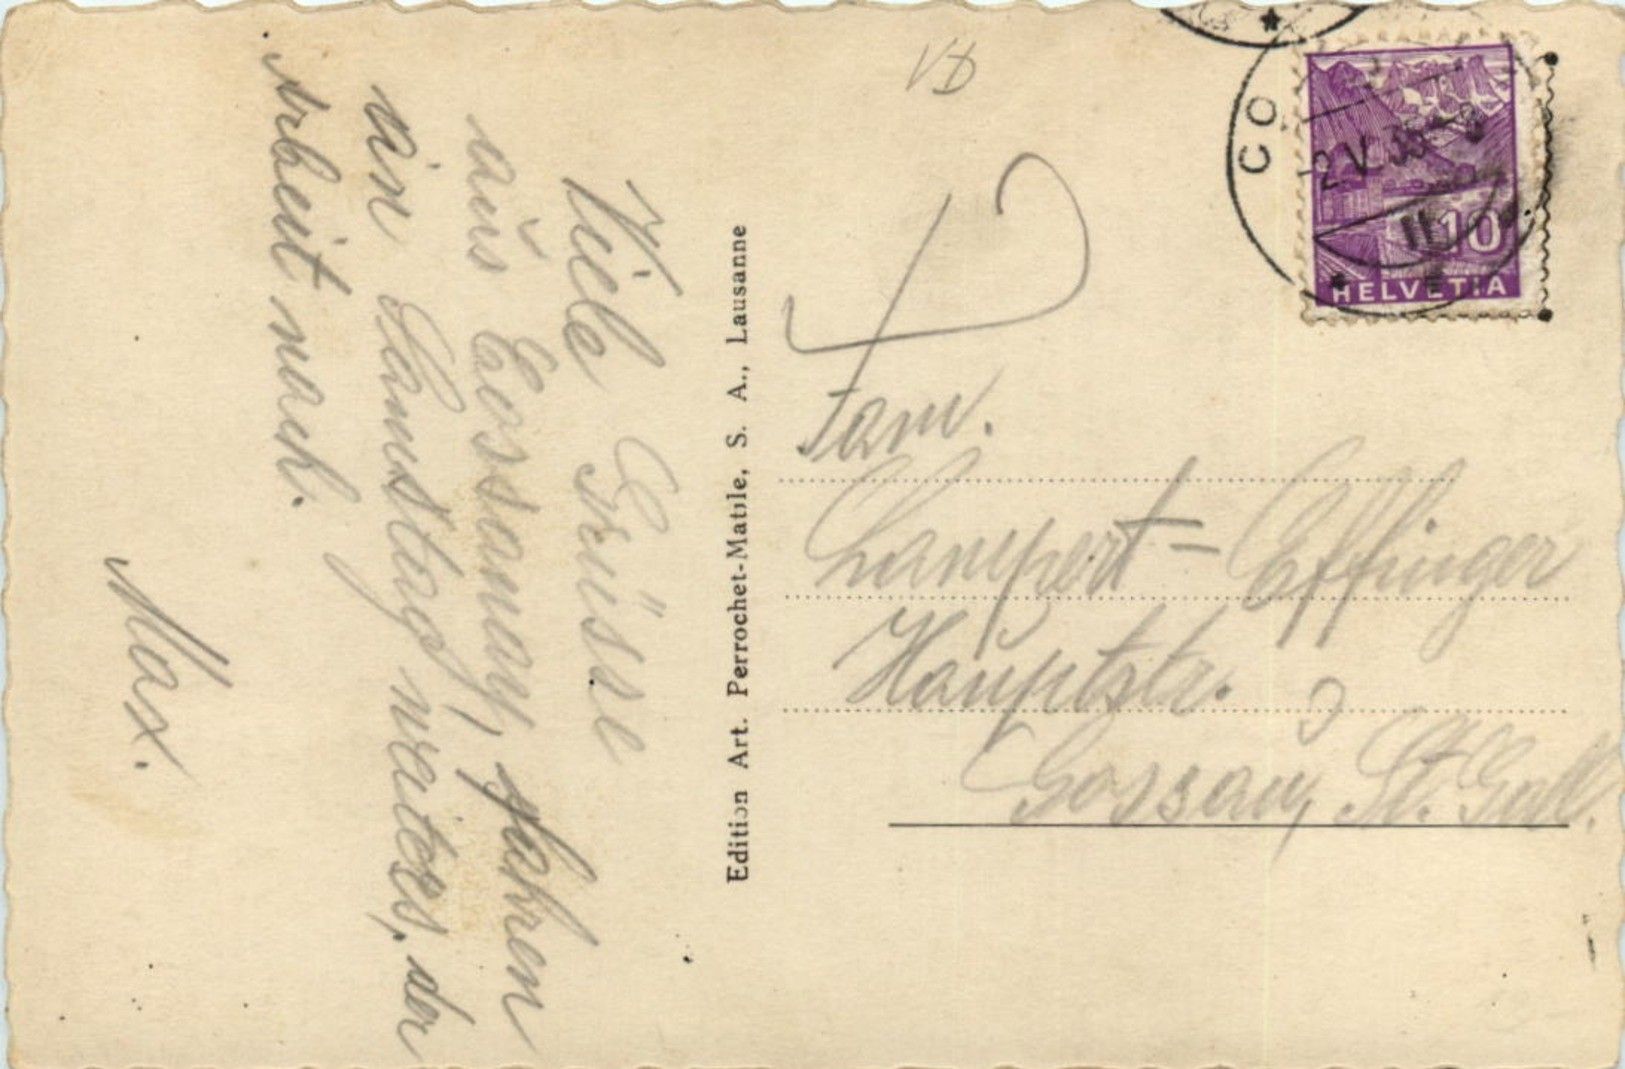 Viele Grüsse
aus Cossonay, fahren
am Samstag weiter, der
Arbeit nach.
Max.
Edition Art. Perrochet-Matile, S. A., Lausanne
VD
CO
-2.V.35-8
II
10
HELVETIA
Fam.
Lampert-Effinger
Hauptstr.
Gossau, St. Gall.